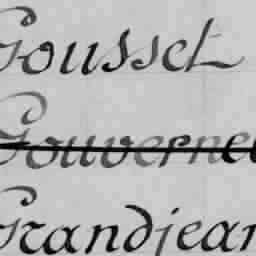 Gousset
Gouverne
Grandjean